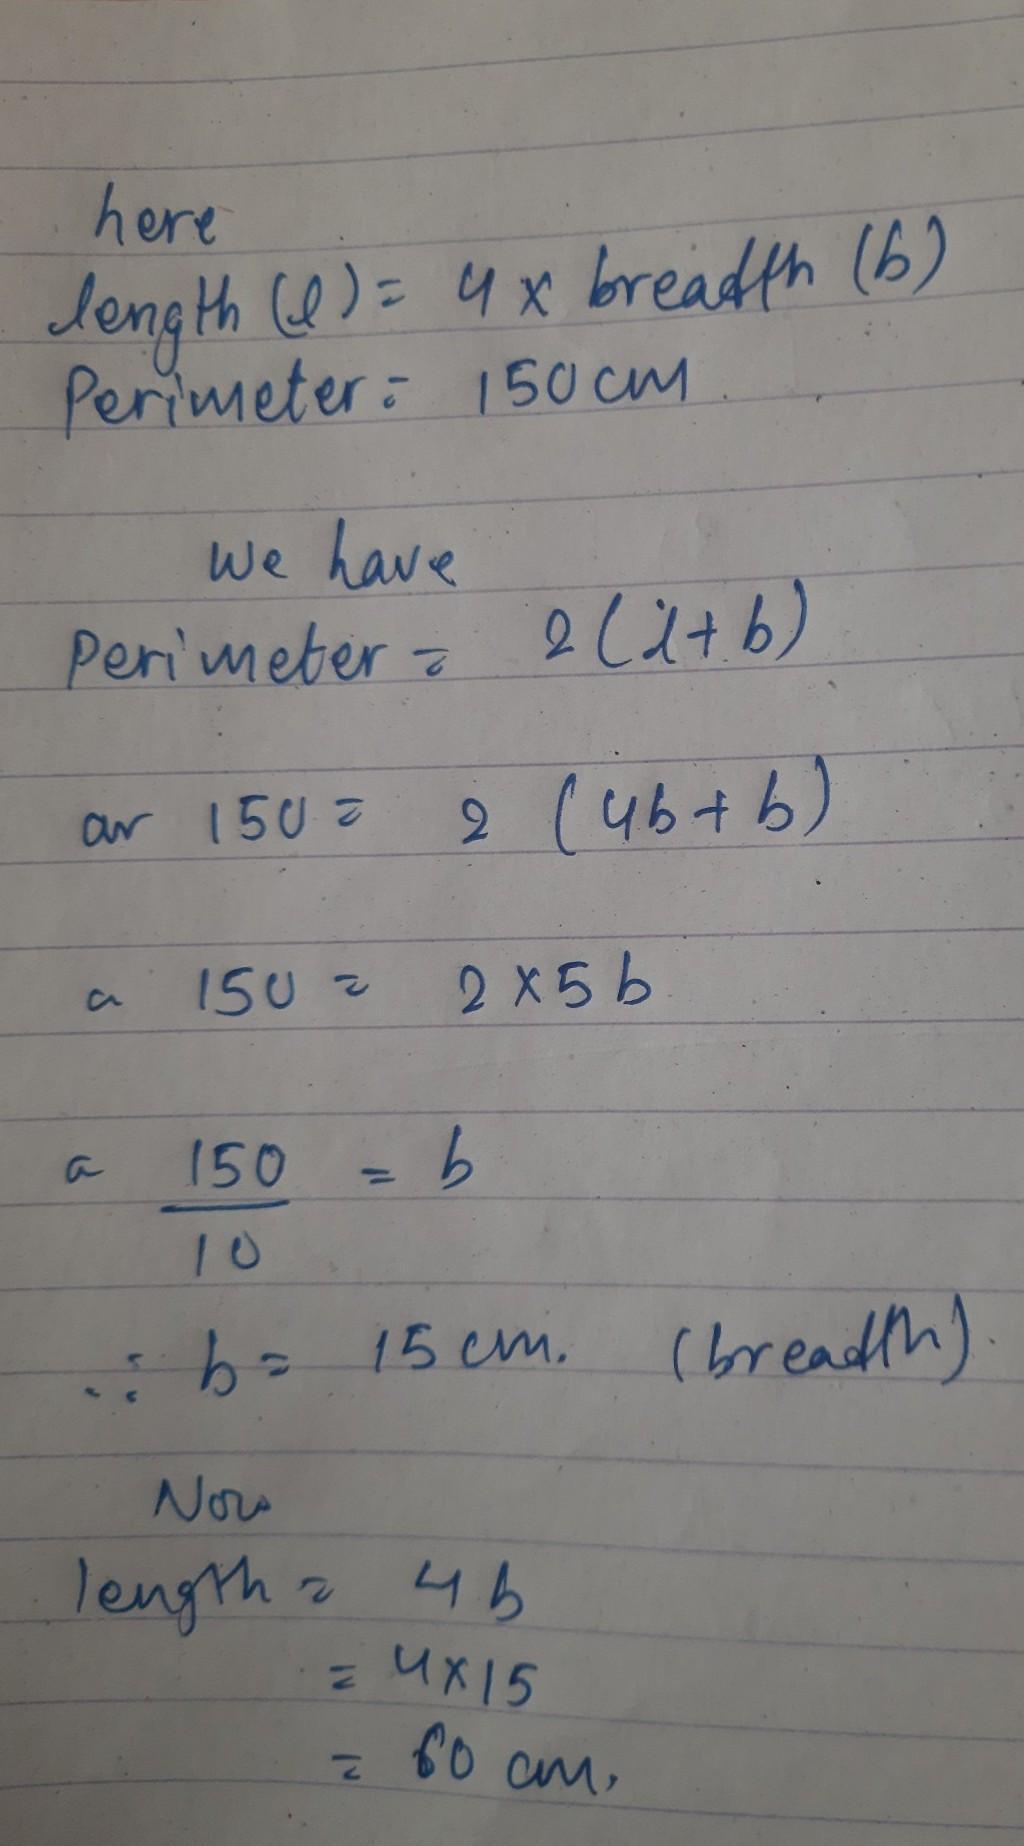 here
length (l) = 4 x breadth (b)
Perimeter = 150 cm.
We have
Perimeter = 2 (l + b)
or 150 = 2 (4b + b)
or 150 = 2 x 5 b
or 150/10 = b
∴ b = 15 cm. (breadth).
Now
length = 4 b
= 4 x 15
= 60 cm.